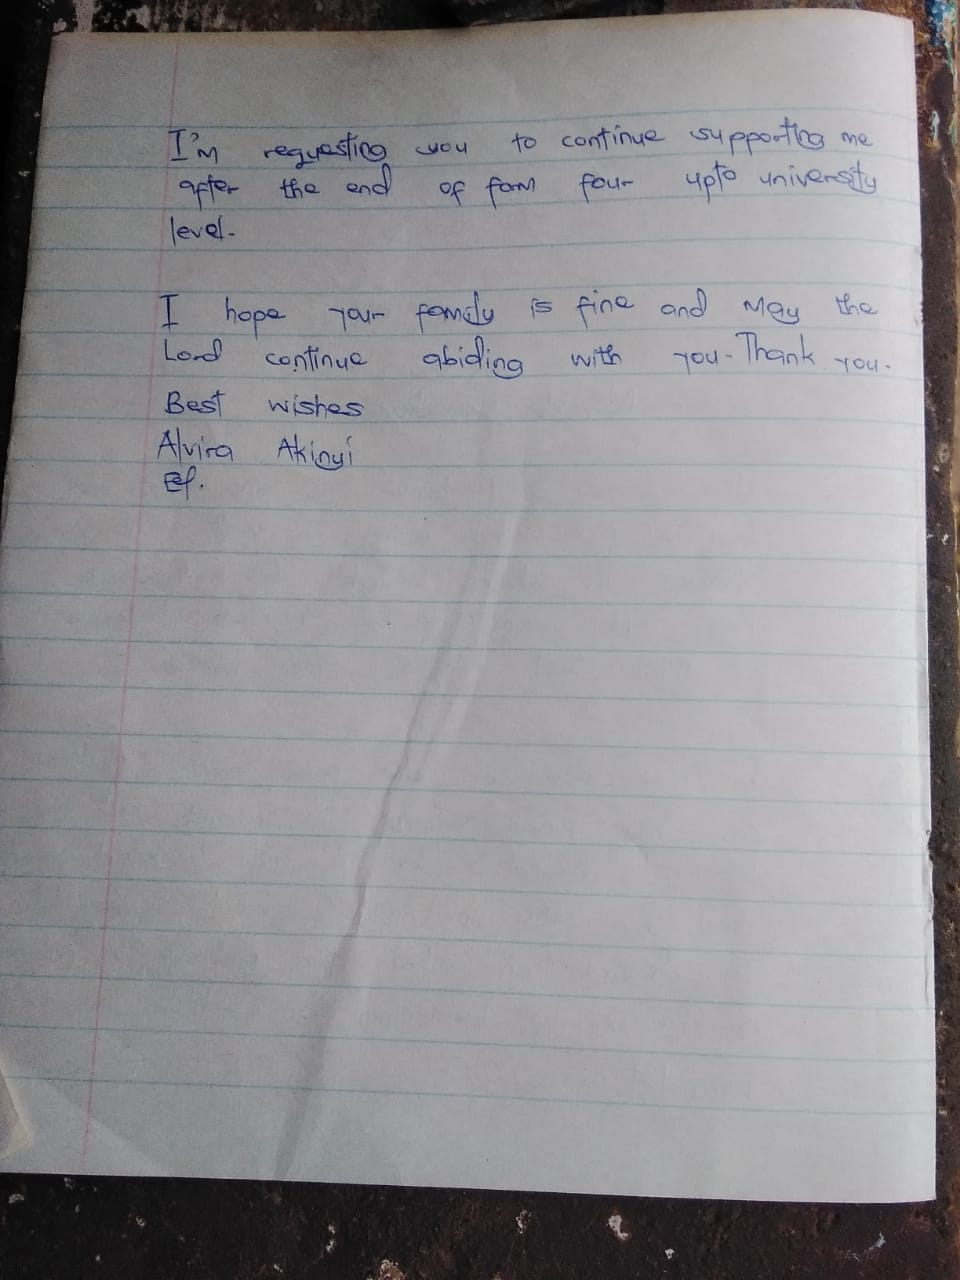 I'm requesting you to continue supporting me
after the end of form four upto university
level.
I hope your family is fine and may the
Lord continue abiding with you. Thank you.
Best wishes
Alvira Akinyi